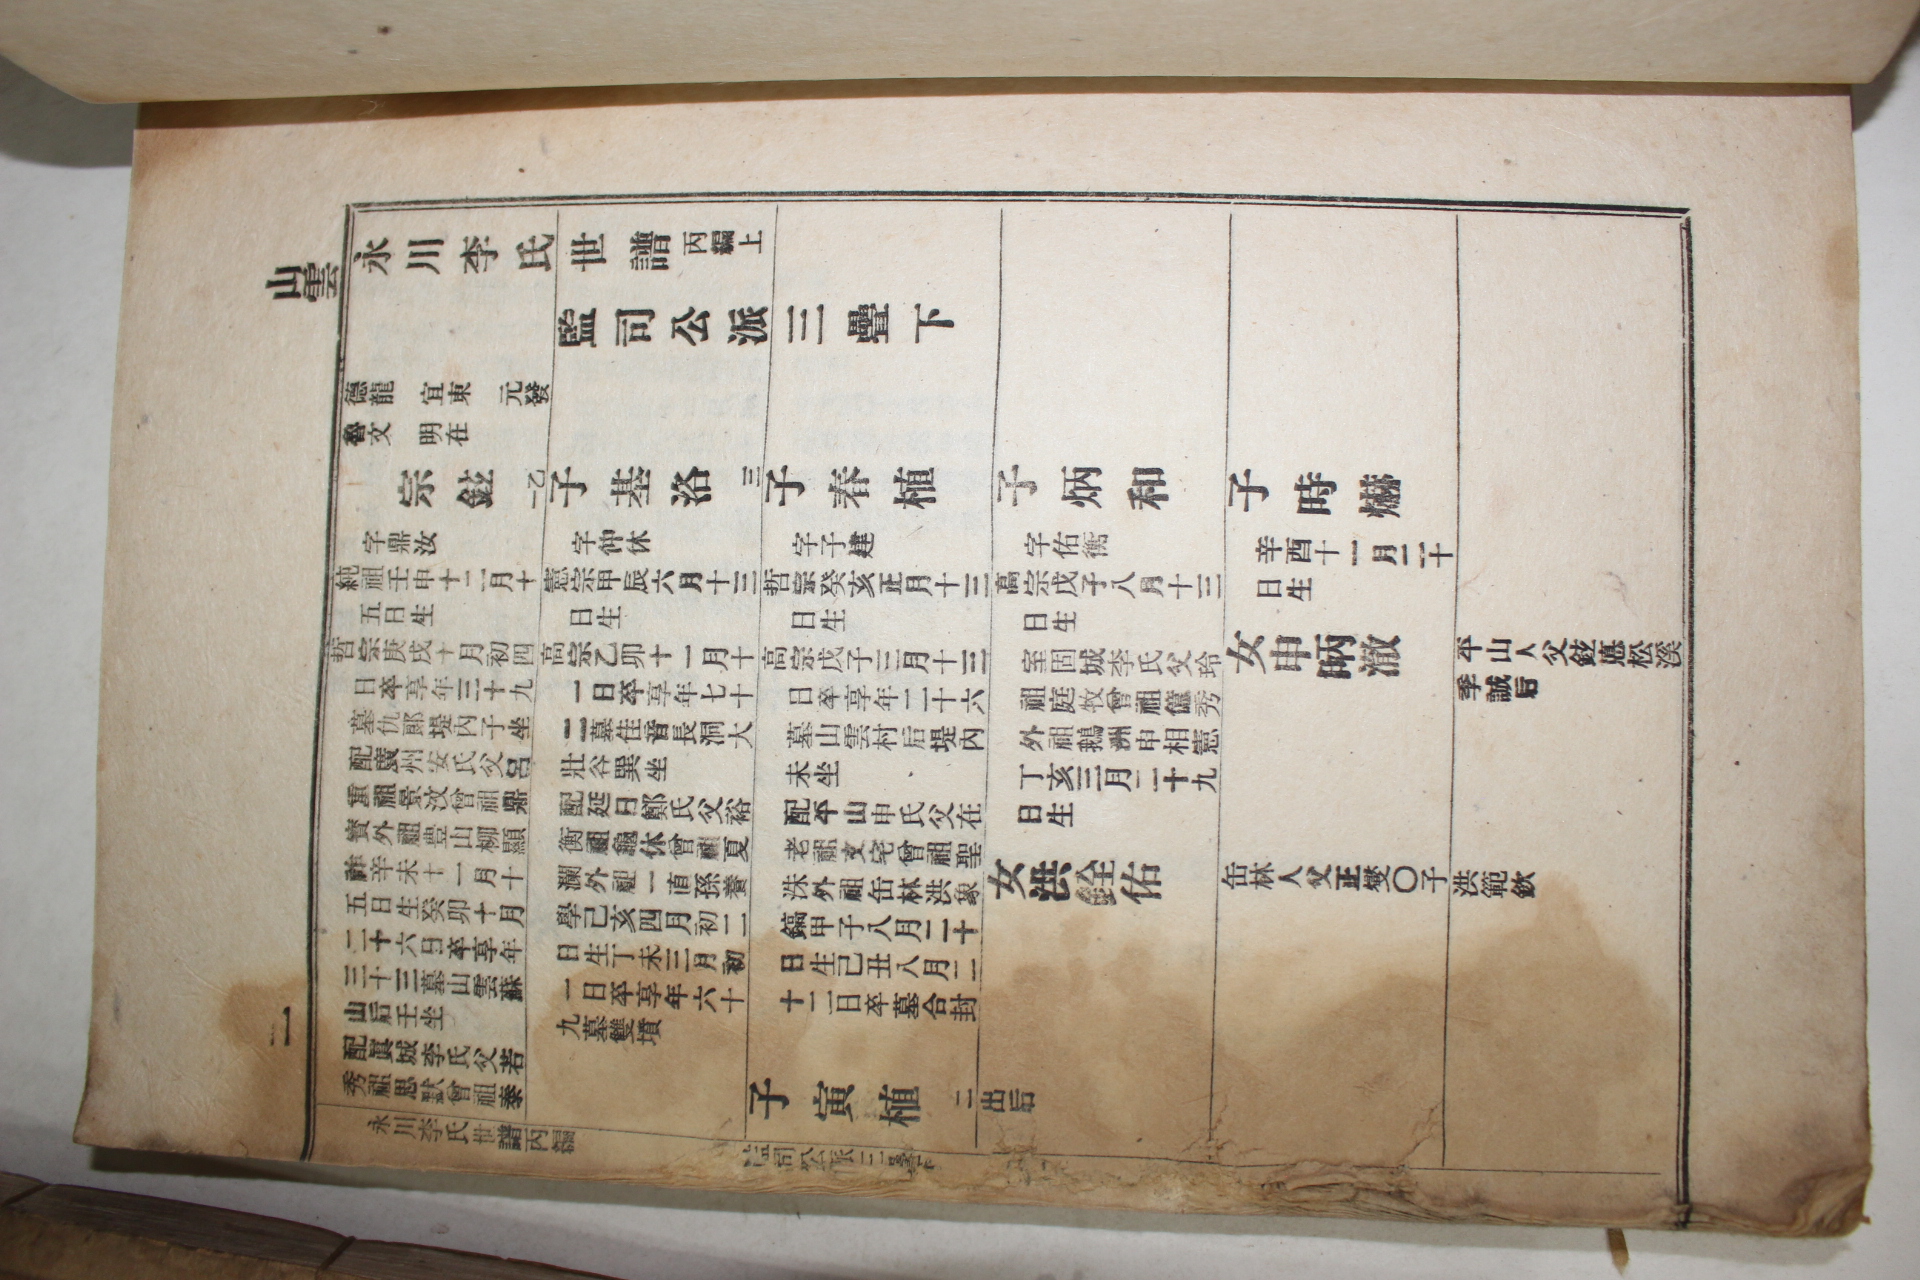 山雲
一
永川李氏世譜 丙編上
監司公派三疊下
德龍 宜東 元發
魯文 明在
宗鉉
字鼎汝
純祖壬申十二月十
五日生
哲宗庚戌十月初四
日卒享年三十九
墓仇郞堤內子坐
配廣州安氏父呂
重祖景汶曾祖鼎
實外祖豊山柳顯
祚辛未十一月十
五日生癸卯十月
二十六日卒享年
三十三墓山雲蘇
山后壬坐
配眞城李氏父若
秀祖思默曾祖泰
一乙
子基洛
字仰休
憲宗甲辰六月十三
日生
高宗乙卯十一月十
一日卒享年七十
二墓佳音長洞大
壯谷巽坐
配延日鄭氏父裕
衡祖龜休曾祖夏
瀾外祖一直孫養
學己亥四月初二
日生丁未三月初
一日卒享年六十
九墓雙墳
三
子春植
字子建
哲宗癸亥正月十三
日生
高宗戊子三月十三
日卒享年二十六
墓山雲村后堤內
未坐
配平山申氏父在
老祖文宅曾祖聖
洙外祖缶林洪象
鎬甲子八月二十
日生己丑八月二
十二日卒墓合封
子寅植
二出后
子炳和
字佑衡
高宗戊子八月十三
日生
室固城李氏父玲
祖庭牧曾祖𥳑秀
外祖鵝洲申相憲
丁亥三月二十九
日生
女洪銓佑
缶林人父正燮〇子
洪範欽
子時爀
辛酉十一月二十
日生
女申昞澈
平山人父鉉悳松溪
季誠后
永川李氏世譜丙編
監司公派三疊下